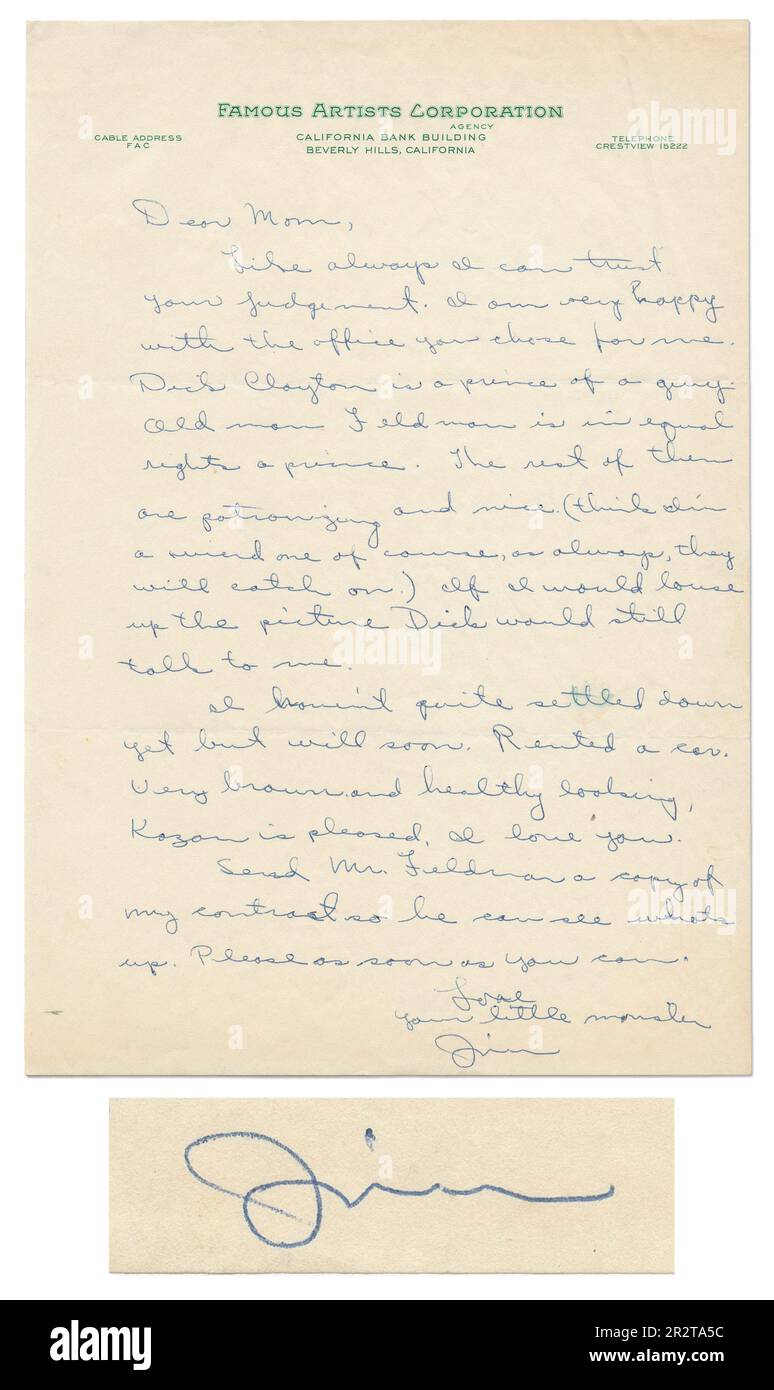 FAMOUS ARTISTS CORPORATION
AGENCY
CABLE ADDRESS
FAC
CALIFORNIA BANK BUILDING
BEVERLY HILLS, CALIFORNIA
TELEPHONE
CRESTVIEW 15222
Dear Mom,
Like always I can trust
your judgement. I am very happy
with the office you chose for me.
Dick Clayton is a prince of a guy.
Old man Feldman is in equal
rights a prince. The rest of them
are patronizing and nice. (think I'm
a wierd one of course, as always, they
will catch on.) If I would louse
up the picture Dick would still
talk to me.
I haven't quite settled down
yet but will soon. Rented a car.
Very brown and healthy looking,
Kazan is pleased, I love you.
Send Mr. Feldman a copy of
my contract so he can see whats
up. Please as soon as you can.
Love
your little monster
Jim
Jim
alamy
Image ID: 2R2TA5C
www.alamy.com